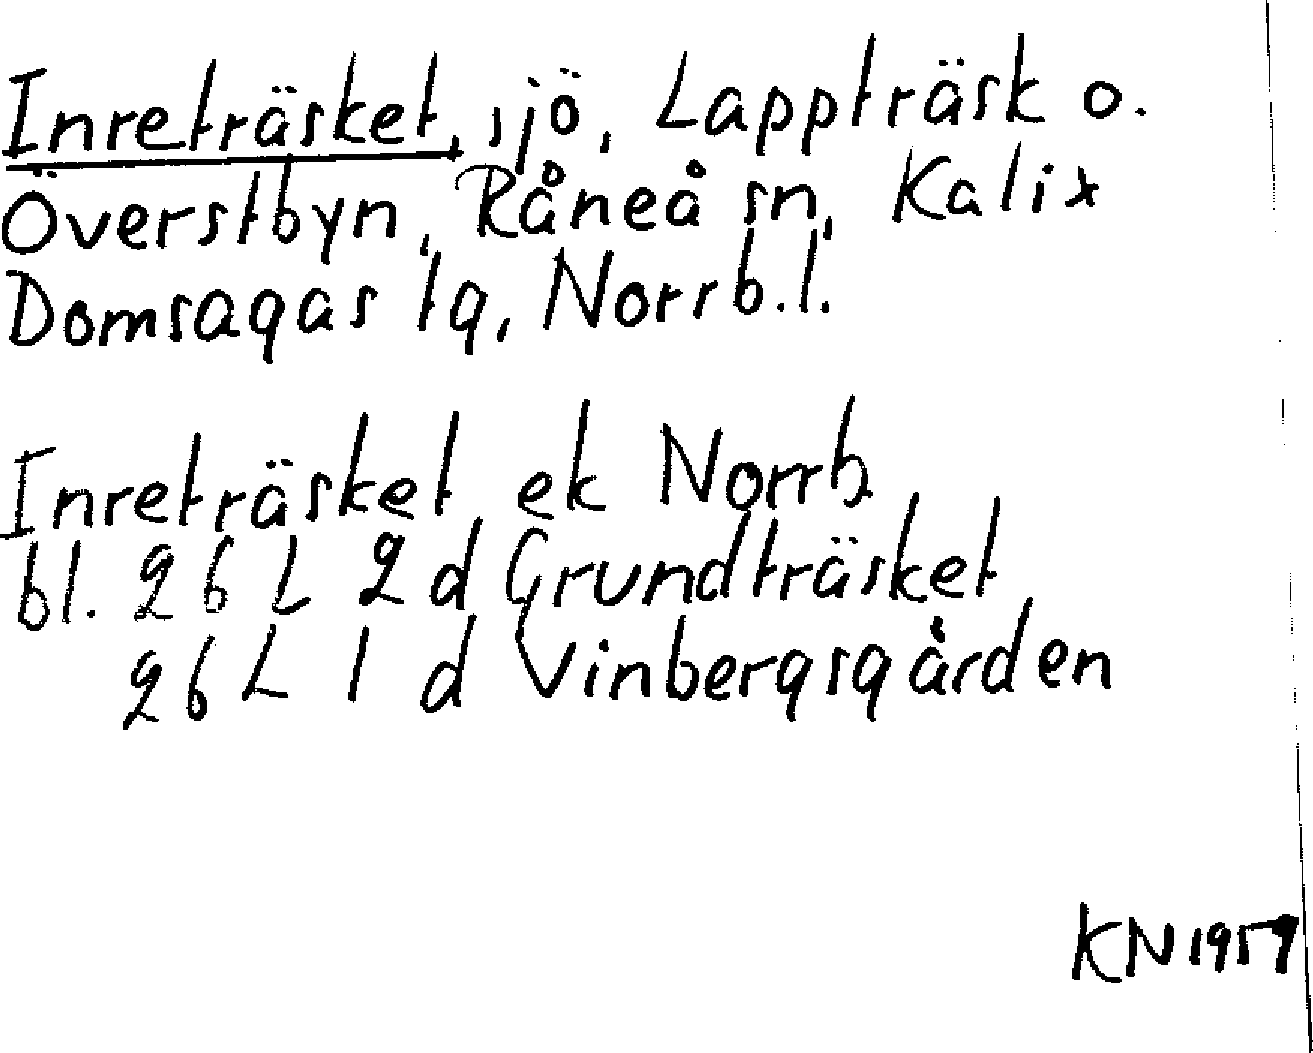 Inreträsket, sjö, Lappträsk o.
Överstbyn, Råneå sn, Kalix
Domsagas tg, Norrb.l.
Inreträsket ek Norrb
bl. 26 L 2 d Grundträsket
26 L 1 d Vinbergsgården
KN